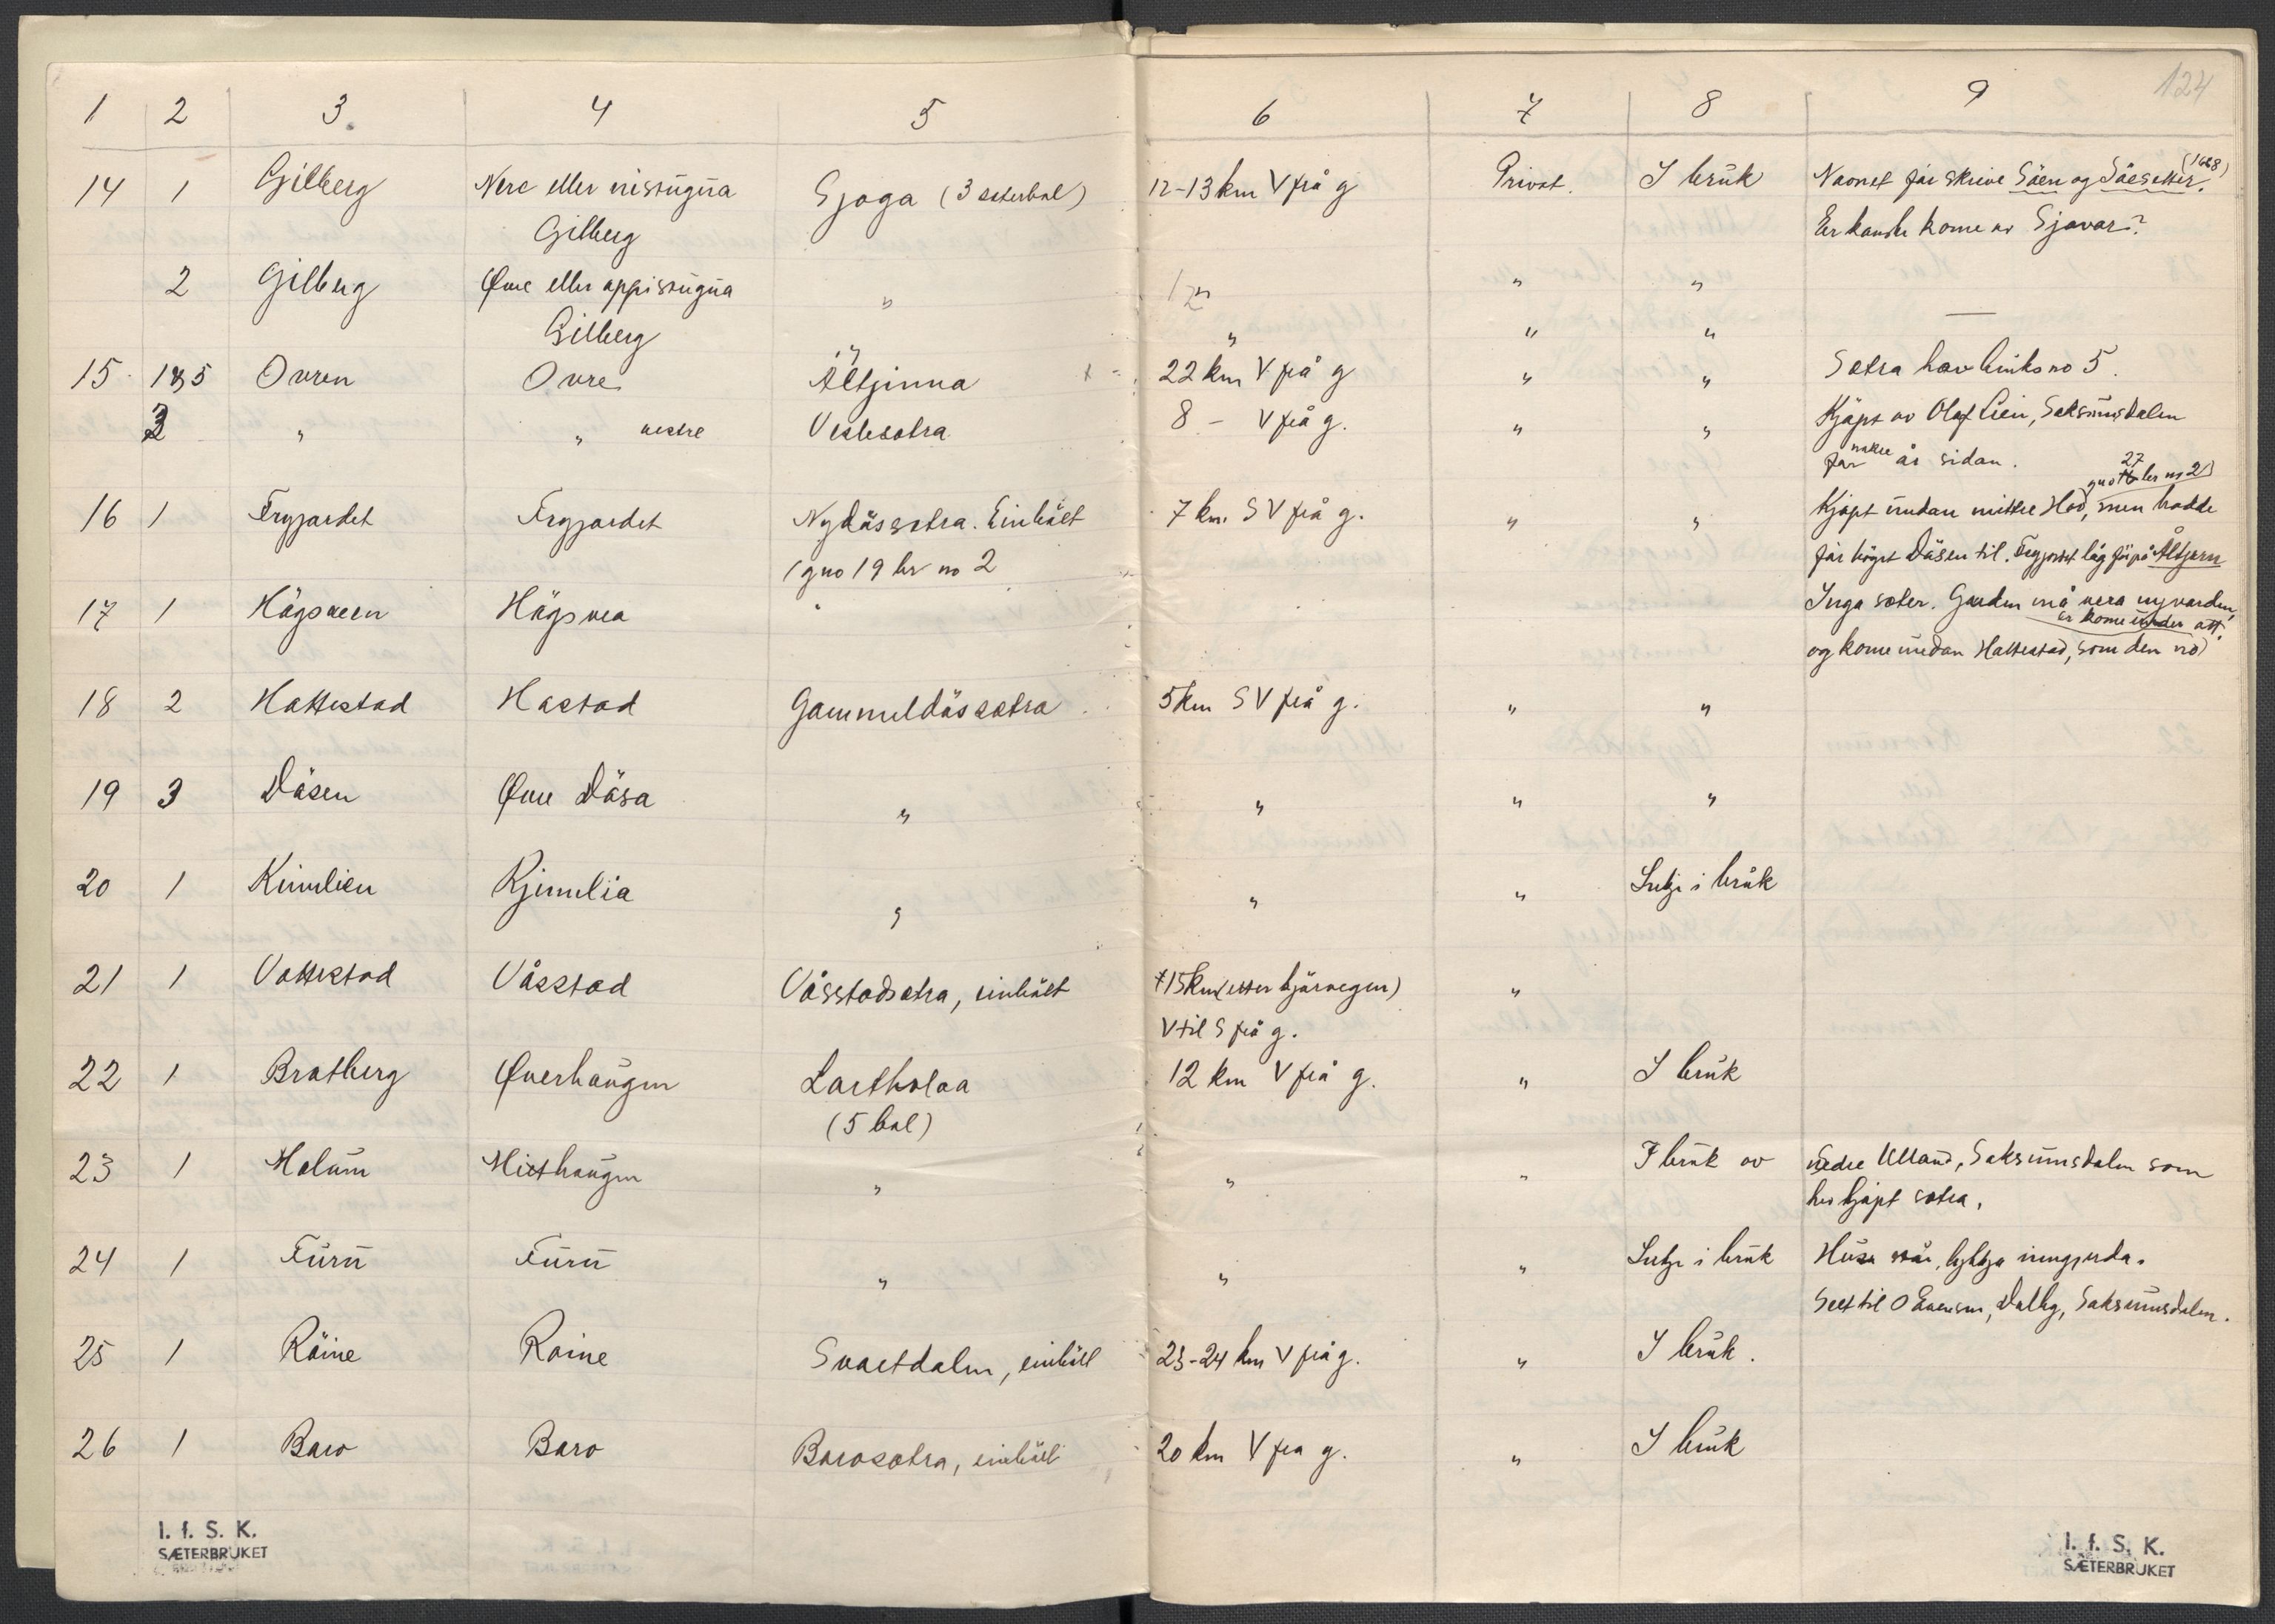 124
1 2 3 4 5 6 7 8 9
14 1 Gilberg Nere eller nistugua Sjoga (3 seterbol) 12-13 km V frå g Privat. I bruk Navnet før skrive Såen og Såesetter. (1668)
Gilberg Er kanske kome av Sjovar?
2 Gilberg Øvre eller oppistugua " " " "
Gilberg " " " " —
15 1 & 5 Ovren Ovre Åltjinna 22 km V frå g " " Setra hav bruks no 5.
3 " " vestre Veslesetra 8 - V frå g. " " Kjøpt av Olaf Lien, Saksumsdalen
for nokre år sidan.
16 1 Frygardet Frygardet Nydåssetra. Einbølt 7 km. S V frå g. " " Kjøpt undan mittre Hov, gno 27 br no 2 men hadde
(gno 19 br no 2 før høyrt Dåsen til. Frygardet låg før på Åltjern
17 1 Hågsveen Hågsvea Inga seter. Garden må vera nyvorden,
og kome undan Hattestad, som den no er kome under att.
18 2 Hattestad Hastad Gammeldåssetra 5 km S V frå g. " "
19 3 Dåsen Øvre Dåsa " " " "
20 1 Kimlien Kjimlia " " " Ikkje i bruk
21 1 Vattestad Våsstad Våsstadsetra, einbølt 15 km (etter kjørvegen) "
V til S frå g.
22 1 Bratberg Øverhaugen Lortholaa 12 km V frå g. " I bruk
(5 bol)
23 1 Holum Misthaugen " " " I bruk av nedre Ulland, Saksumsdalen som
hev kjøpt setra.
24 1 Furu Furu " " " Ikkje i bruk Husa står, løkkja inngjerda.
Selt til O Evensen, Dalby, Saksumsdalen.
25 1 Råine Roine Svartdalen, einbølt 23-24 km V frå g. " I bruk.
26 1 Baro Baro Barosetra, einbølt 20 km V fra g. " I bruk
I. f. S. K.
SÆTERBRUKET
I. f. S. K.
SÆTERBRUKET